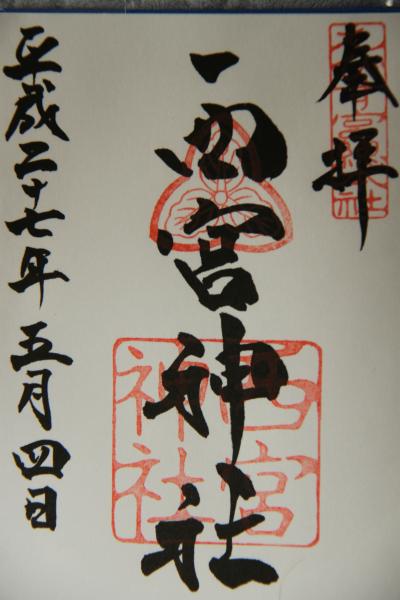 奉拝
西宮神社
西宮
神社
平成二十七年 五月四日